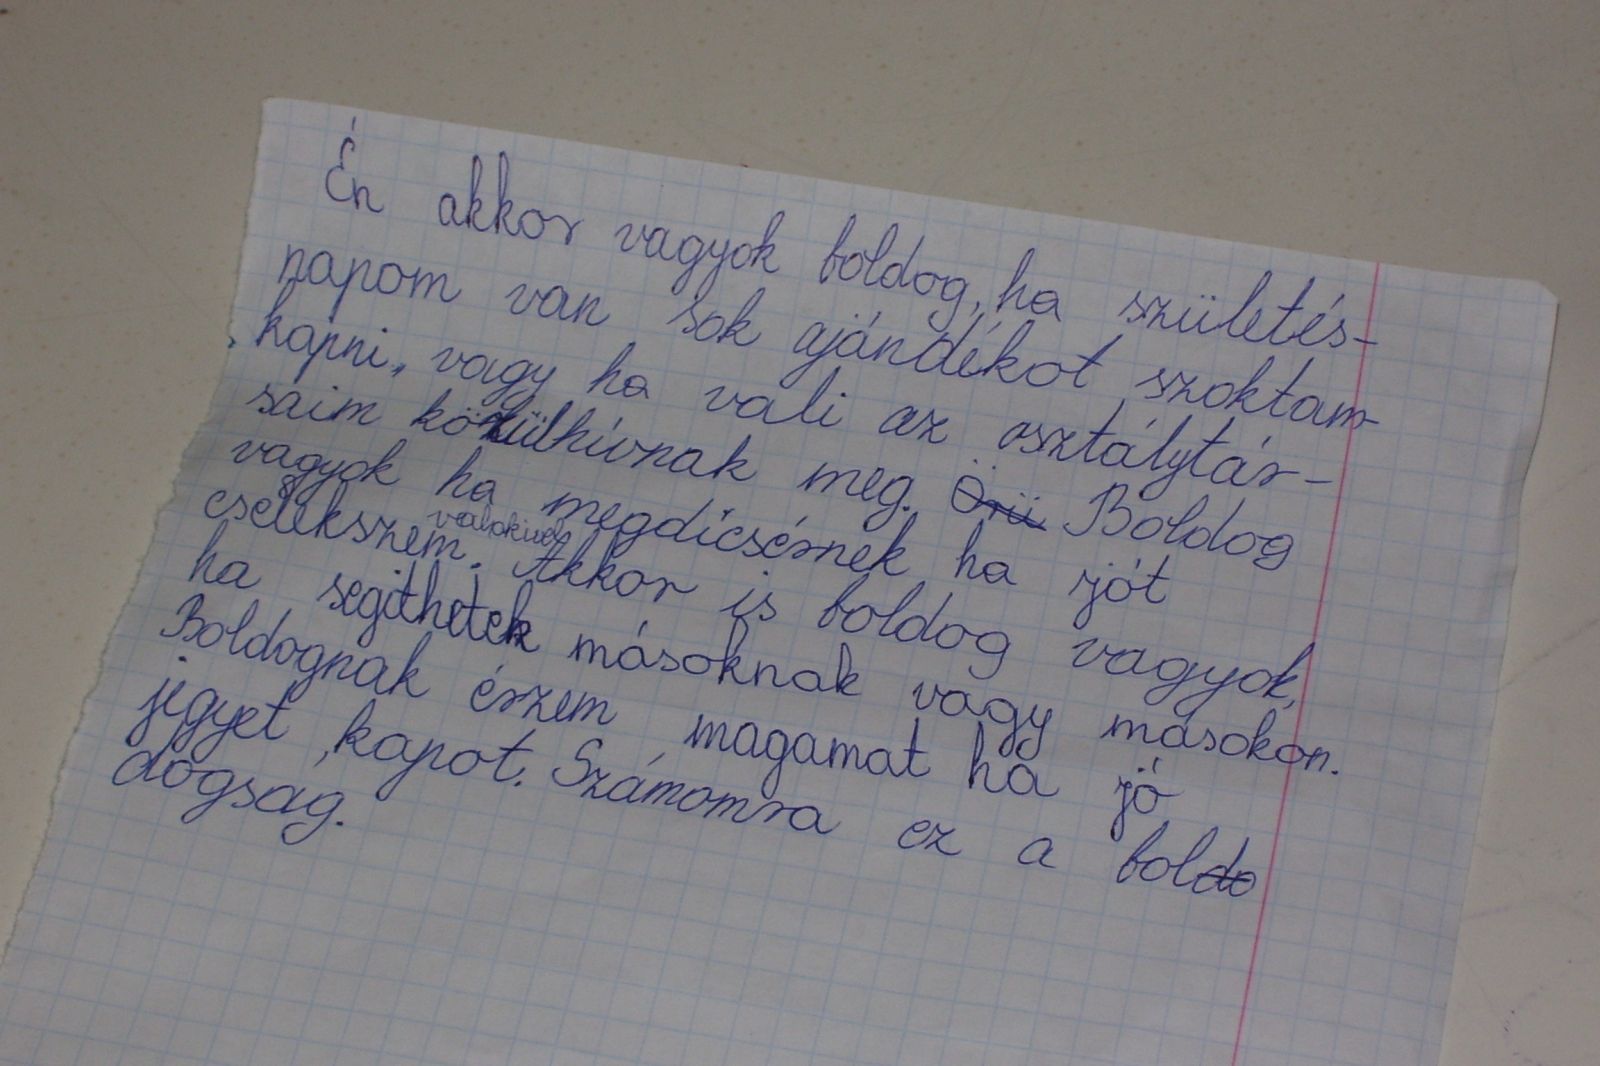 Én akkor vagyok boldog, ha születés-
napom van sok ajándékot szoktam
kapni, vagy ha vali az osztálytár-
saim közülhívnak meg. Örü Boldog
vagyok ha megdícsérnek ha jót
valakivel
cselekszem. Akkor is boldog vagyok,
ha segithetek másoknak vagy másokon.
Boldognak érzem magamat ha jó
jegyet kapot. Számomra ez a boldo
dogság.